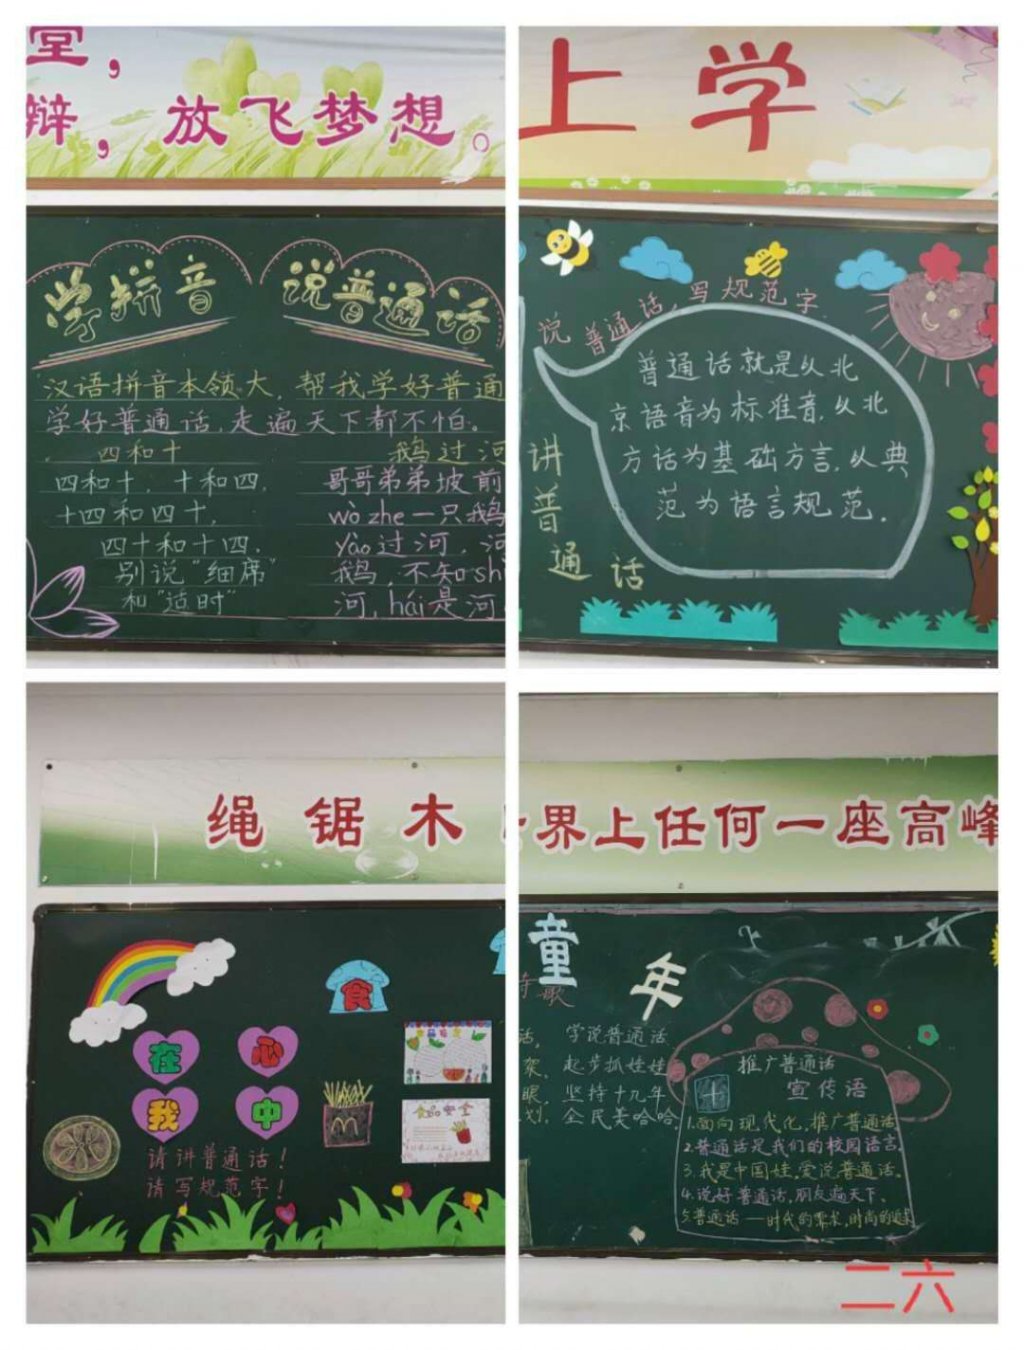 堂，
辩，放飞梦想。
学拼音 说普通话
汉语拼音本领大，帮我学好普通
学好普通话，走遍天下都不怕。
四和十
四和十，十和四，
十四和四十，
四十和十四，
别说“细席”
和“适时”
鹅过河
哥哥弟弟坡前
wò zhe一只鹅
yào过河，河
鹅，不知sh
河，hái是河
上学
说普通话，写规范字
普通话就是以北
京语音为标准音，以北
方话为基础方言，以典
范为语言规范。
讲普通话
绳锯木
食
在心
我中
请讲普通话！
请写规范字！
食品安全
界上任何一座高峰
童年
诗歌
话，学说普通话
架，起步抓娃娃
眼，坚持十九年
划，全民美哈哈
推广普通话
宣传语
1.面向现代化，推广普通话
2.普通话是我们的校园语言。
3.我是中国娃，爱说普通话。
4.说好普通话，朋友遍天下、
5.普通话——时代的需求，时尚的追求
二六